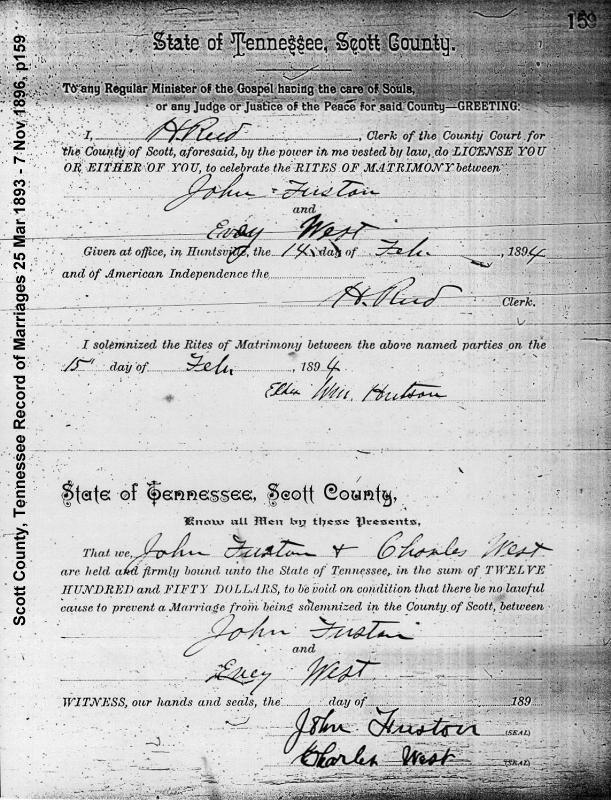 159
State of Tennessee, Scott County.
To any Regular Minister of the Gospel having the care of Souls,
or any Judge or Justice of the Peace for said County—GREETING:
I, H. Reed, Clerk of the County Court for
the County of Scott, aforesaid, by the power in me vested by law, do LICENSE YOU
OR EITHER OF YOU, to celebrate the RITES OF MATRIMONY between
John Fuston
and
West
Given at office, in Huntsville, the 14 day of Feb, 1894
and of American Independence the
H. Reed Clerk.
I solemnized the Rites of Matrimony between the above named parties on the
15" day of Feb, 1894
Elder Wm. Hutson
State of Tennessee, Scott County,
Know all Men by these Presents,
That we, John Fuston & Charles West
are held and firmly bound unto the State of Tennessee, in the sum of TWELVE
HUNDRED and FIFTY DOLLARS, to be void on condition that there be no lawful
cause to prevent a Marriage from being solemnized in the County of Scott, between
John Fuston
and
West
WITNESS, our hands and seals, the day of 189
John Fuston (SEAL)
Charles West (SEAL)
Scott County, Tennessee Record of Marriages 25 Mar 1893 - 7 Nov 1896, p159